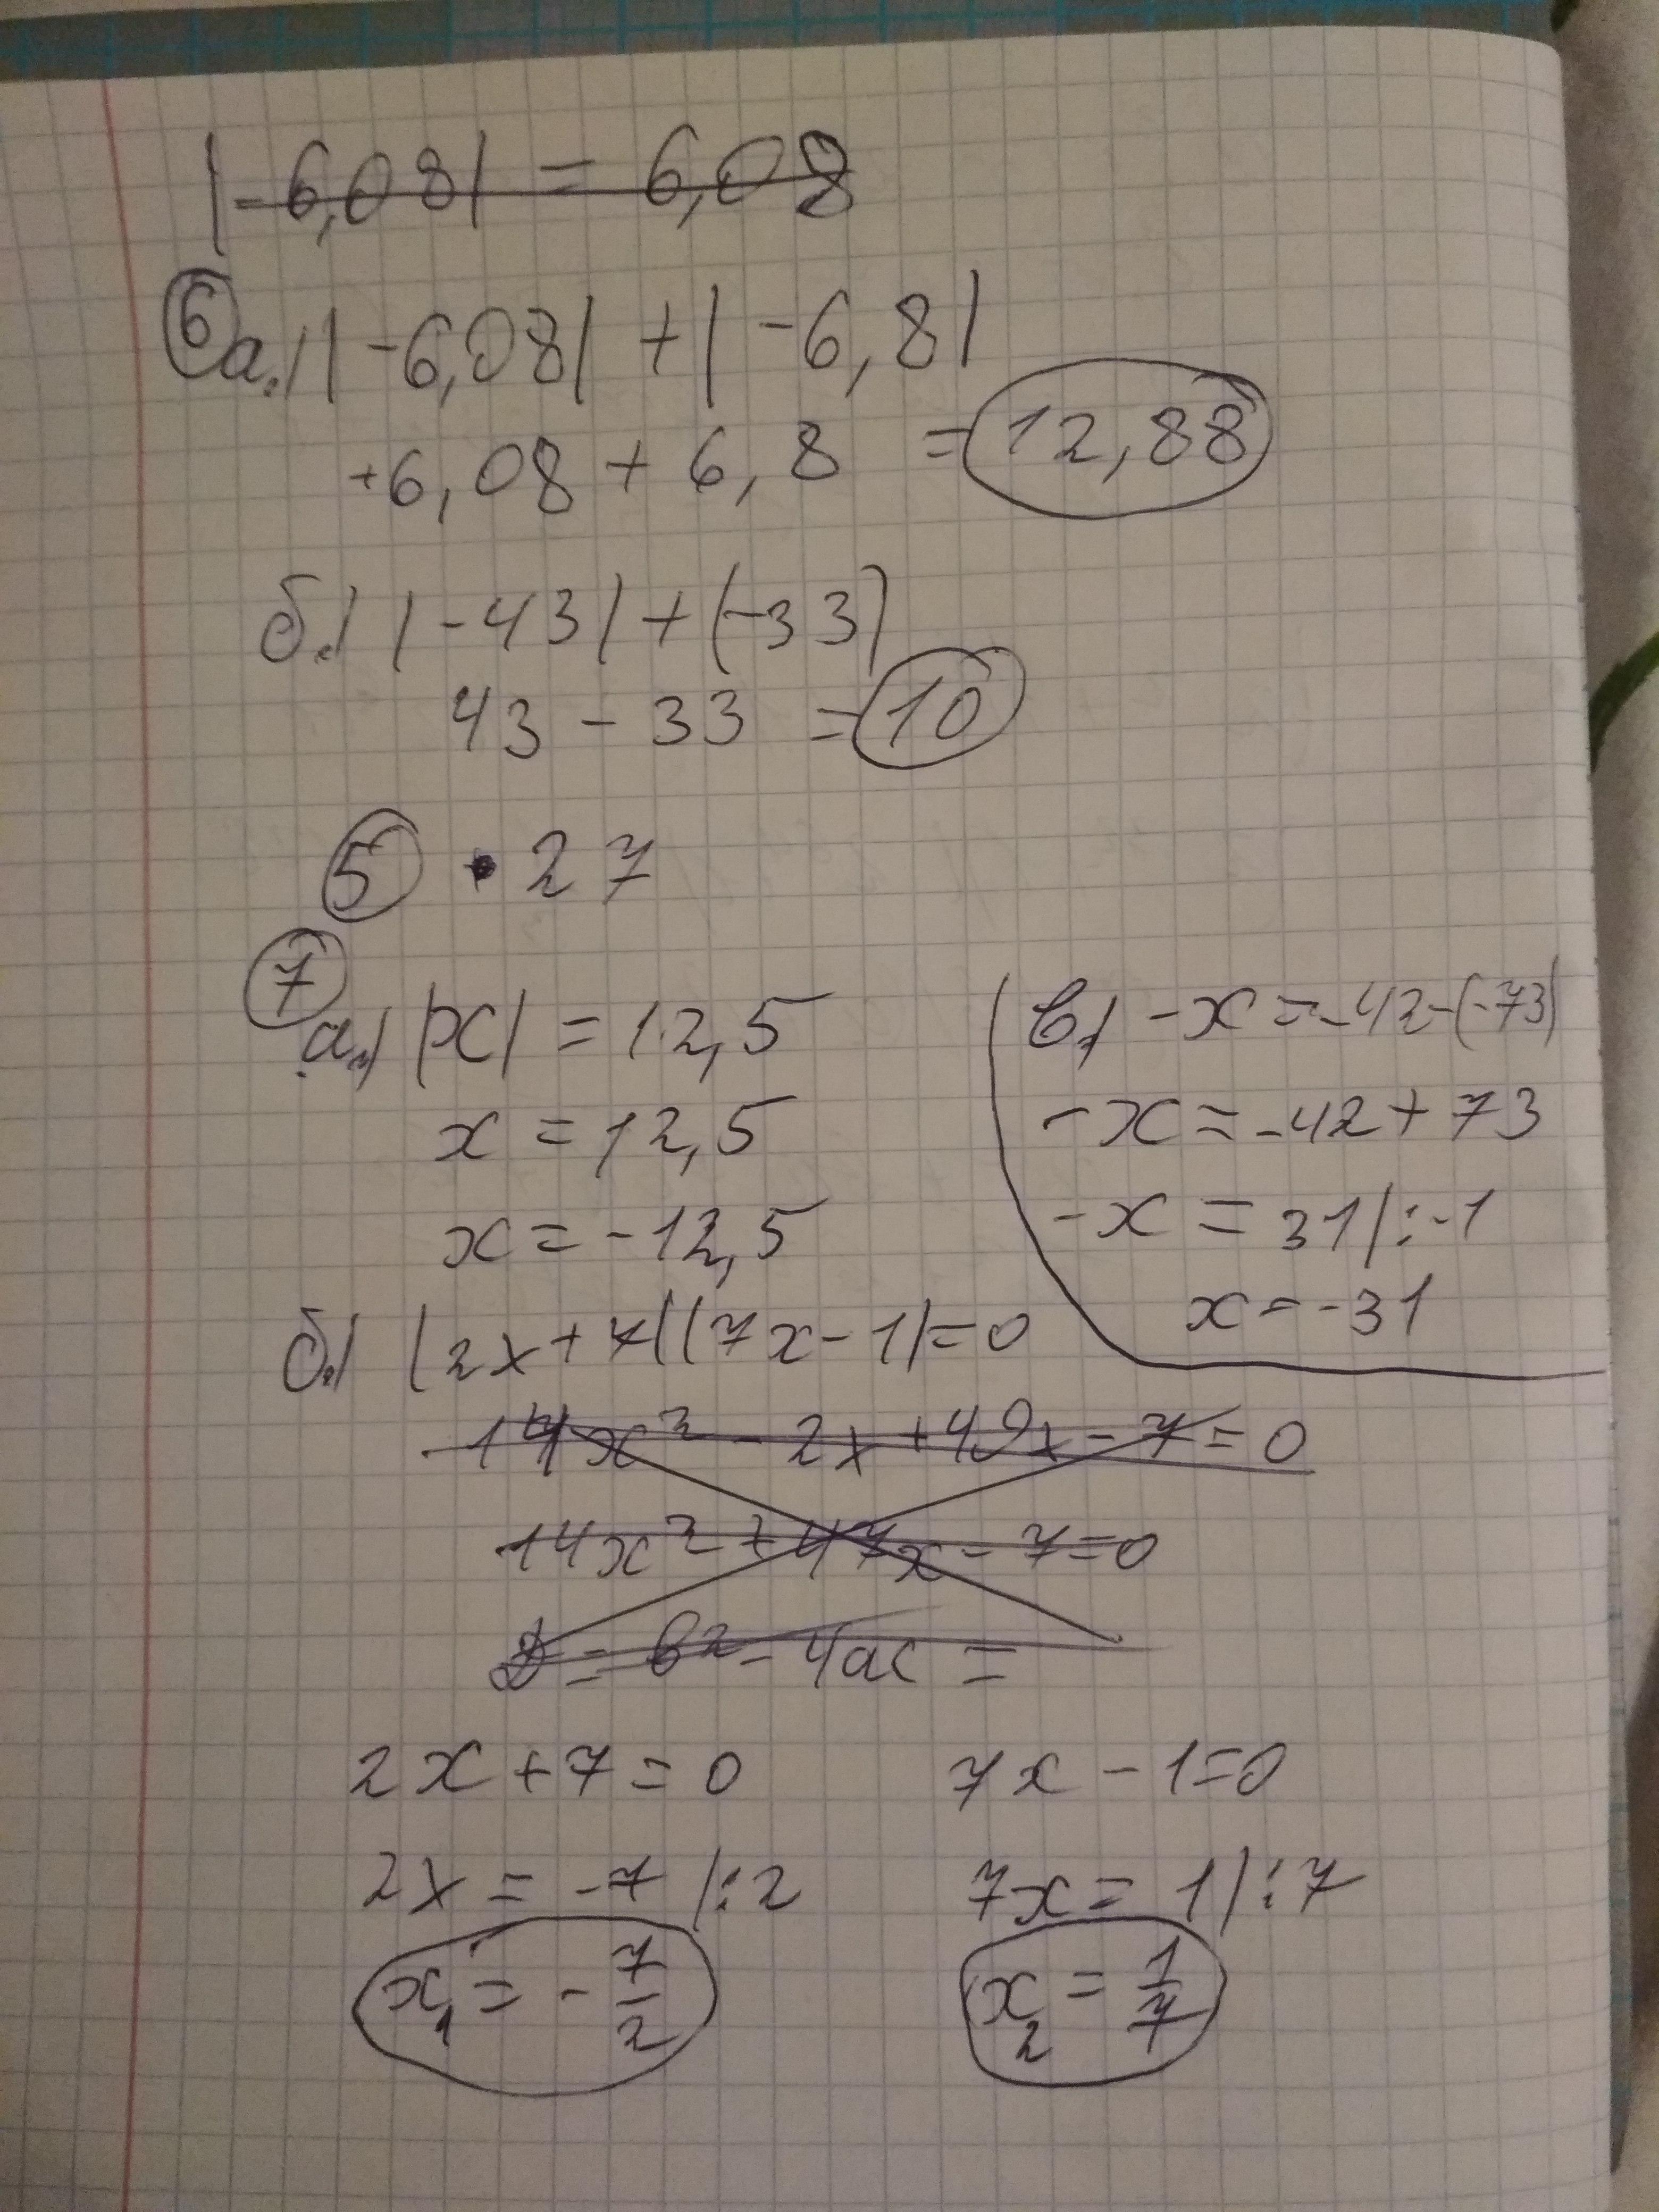 |-6,08| = 6,08
6
а.) |-6,08| + |-6,8|
+6,08 + 6,8 = 12,88
б.) |-43| + (-33)
43 - 33 = 10
5 • 27
7
а.) |x| = 12,5
x = 12,5
x = -12,5
б.) (2x+7)(7x-1)=0
14x² - 2x + 49x - 7 = 0
14x² + 47x - 7 = 0
D = b² - 4ac =
2x + 7 = 0
2x = -7 |:2
x₁ = -7/2
7x - 1 = 0
7x = 1 |:7
x₂ = 1/7
в) -x = -42-(-73)
-x = -42 + 73
-x = 31 |:-1
x = -31